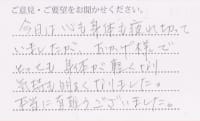 ご意見・ご要望をお聞かせください。
今日は心も身体も疲れ切って
いましたが、おかげ様で
とっても身体が軽くなり
気持も明るくなりました。
本当に有難うございました。